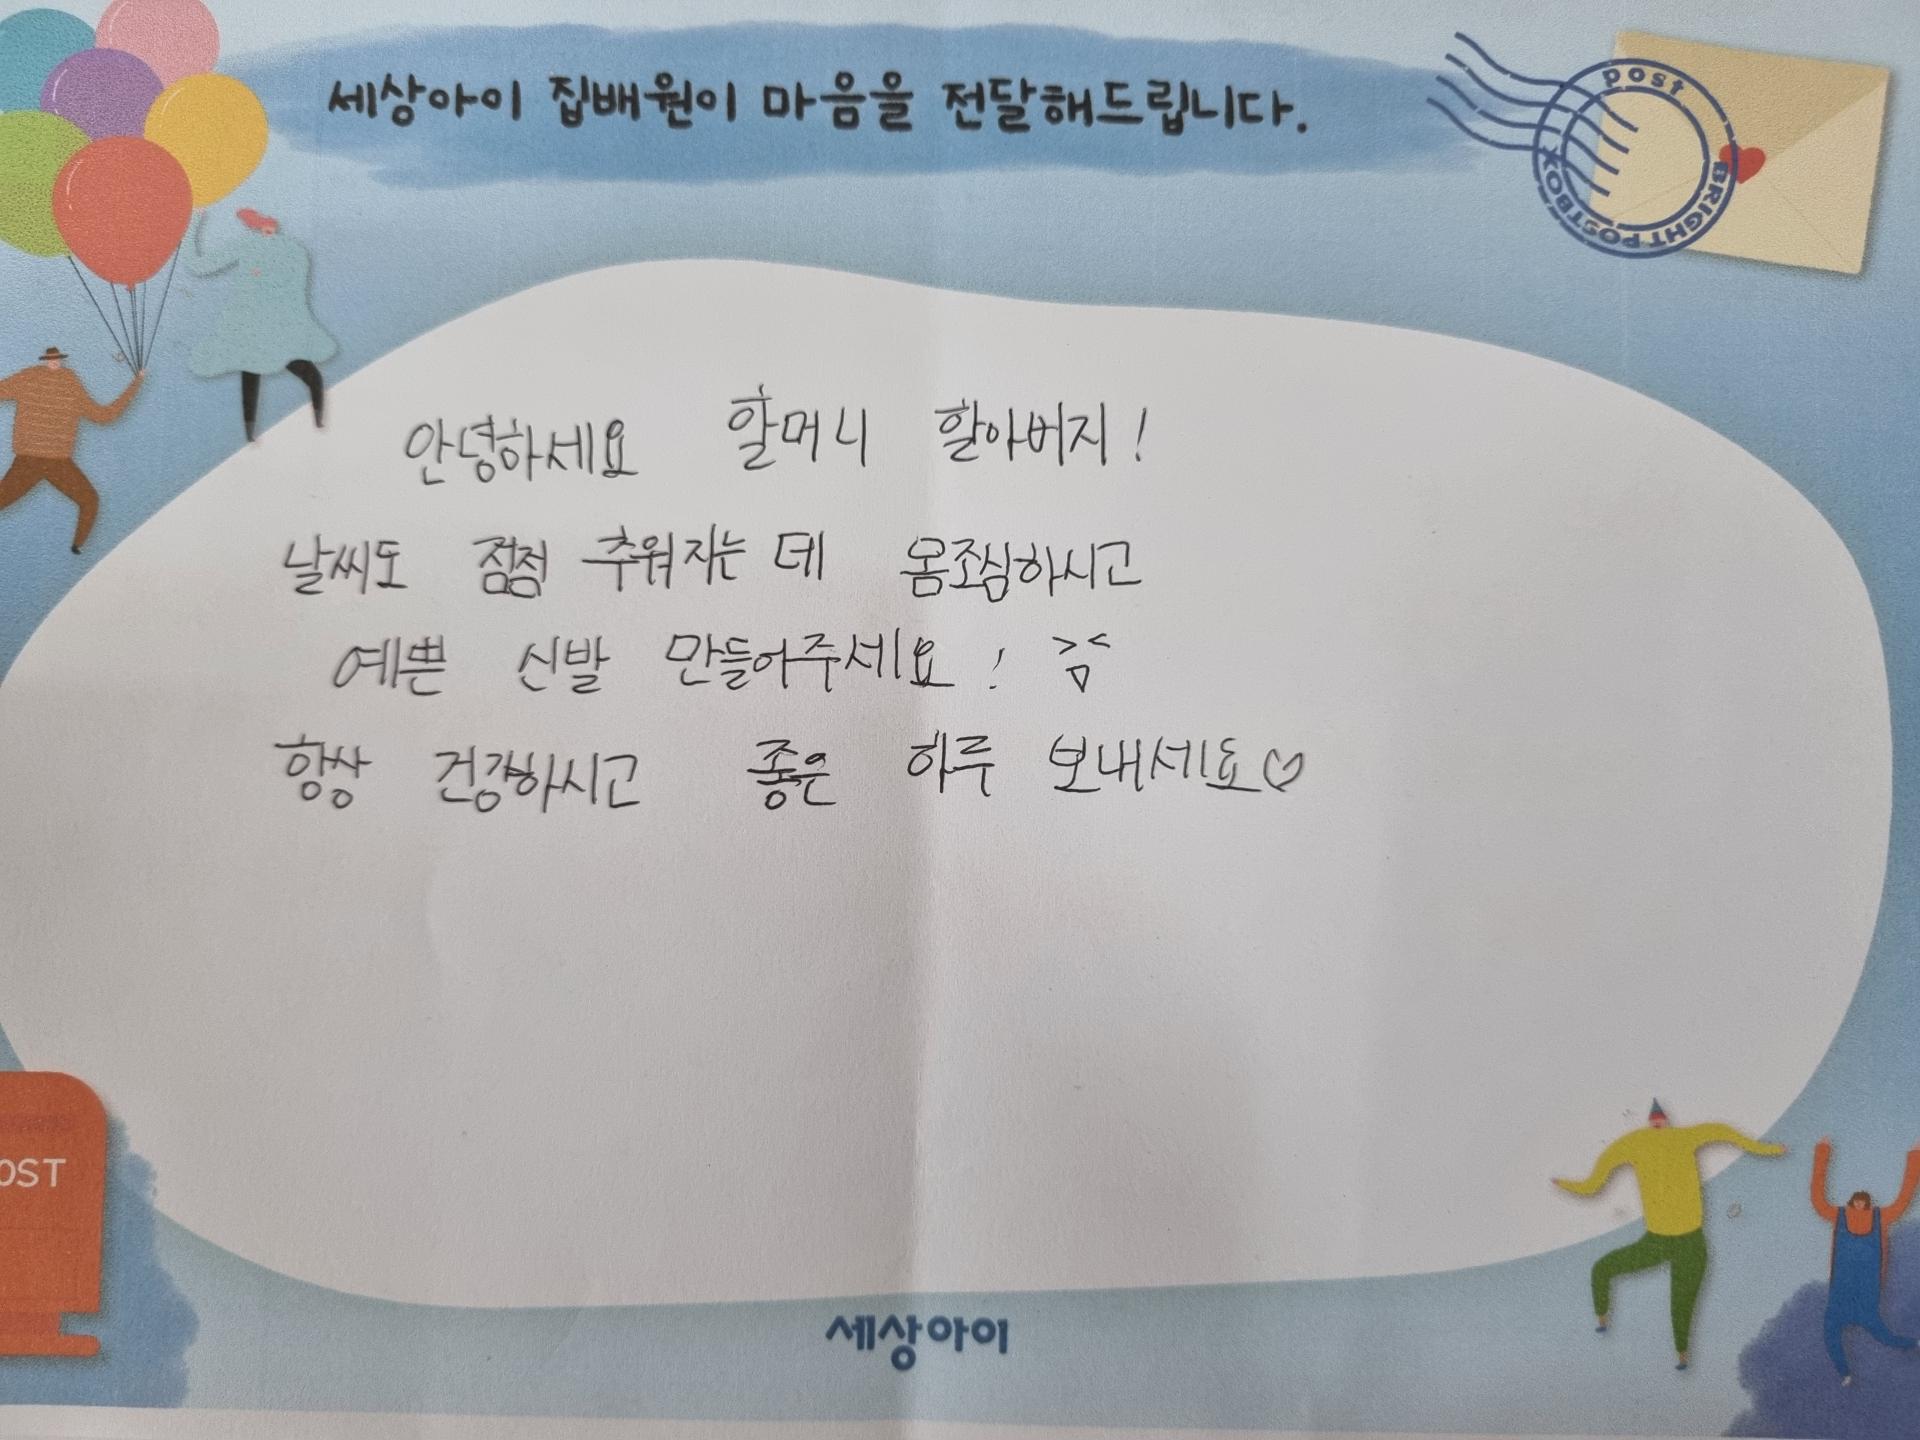 세상아이 집배원이 마음을 전달해드립니다.
post
BRIGHT POSTBOX
안녕하세요 할머니 할아버지!
날씨도 점점 추워지는데 몸조심하시고
예쁜 신발 만들어주세요!
항상 건강하시고 좋은 하루 보내세요♡
OST
세상아이